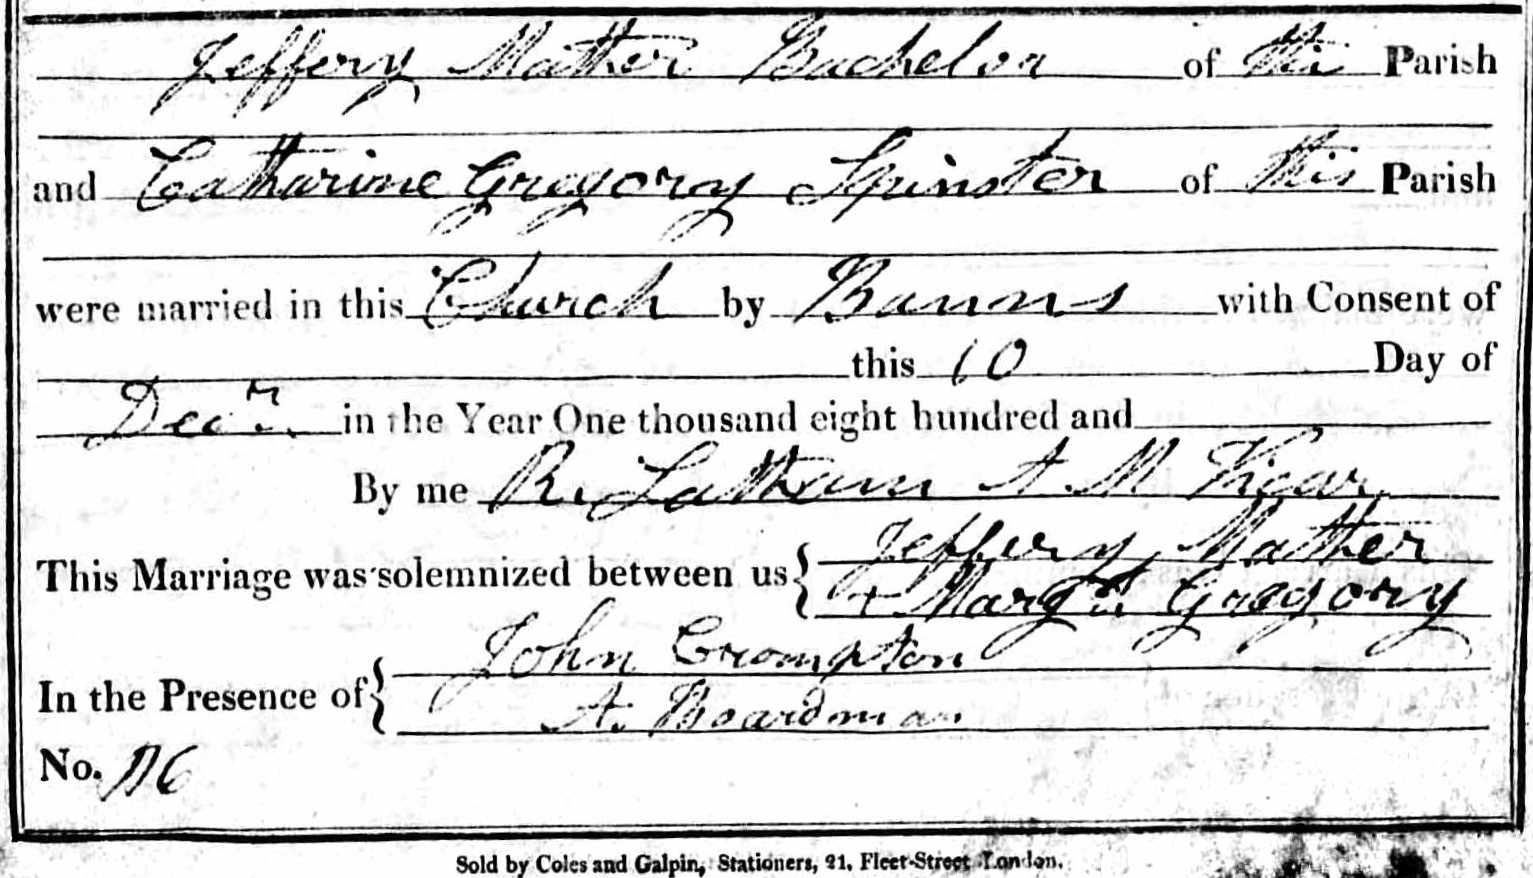 Jeffery Mather Bachelor of this Parish
and Catharine Gregory Spinster of this Parish
were married in this Church by Banns with Consent of
this 10 Day of
Decr. in the Year One thousand eight hundred and
By me R. Latham A. M. Vicar
This Marriage was solemnized between us { Jeffery Mather
+ Margt. Gregory
In the Presence of { John Crompton
A. Boardman
No. 176
Sold by Coles and Galpin, Stationers, 21, Fleet-Street London.